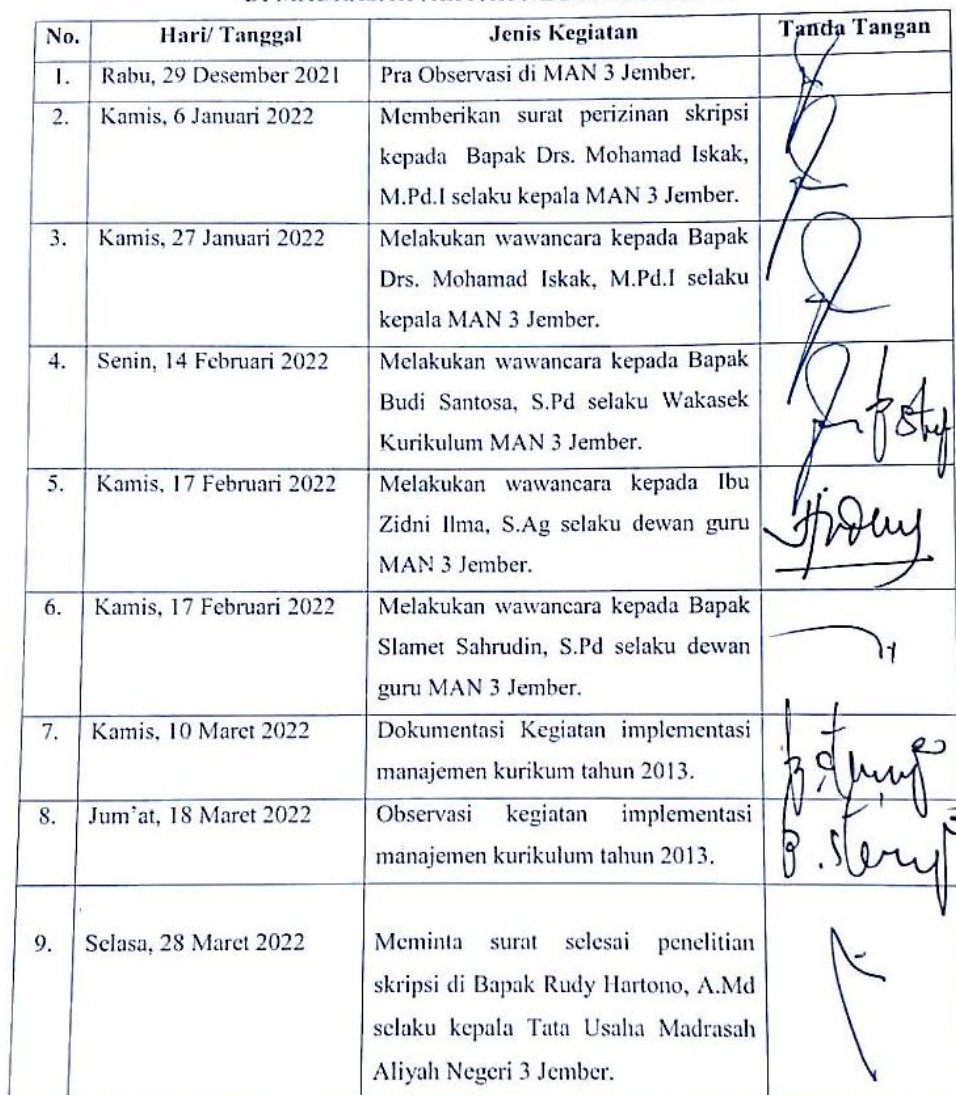 No. Hari/ Tanggal Jenis Kegiatan Tanda Tangan
1. Rabu, 29 Desember 2021 Pra Observasi di MAN 3 Jember.
2. Kamis, 6 Januari 2022 Memberikan surat perizinan skripsi
kepada Bapak Drs. Mohamad Iskak,
M.Pd.I selaku kepala MAN 3 Jember.
3. Kamis, 27 Januari 2022 Melakukan wawancara kepada Bapak
Drs. Mohamad Iskak, M.Pd.I selaku
kepala MAN 3 Jember.
4. Senin, 14 Februari 2022 Melakukan wawancara kepada Bapak
Budi Santosa, S.Pd selaku Wakasek
Kurikulum MAN 3 Jember.
5. Kamis, 17 Februari 2022 Melakukan wawancara kepada Ibu
Zidni Ilma, S.Ag selaku dewan guru
MAN 3 Jember.
6. Kamis, 17 Februari 2022 Melakukan wawancara kepada Bapak
Slamet Sahrudin, S.Pd selaku dewan
guru MAN 3 Jember.
7. Kamis, 10 Maret 2022 Dokumentasi Kegiatan implementasi
manajemen kurikum tahun 2013.
8. Jum'at, 18 Maret 2022 Observasi kegiatan implementasi
manajemen kurikulum tahun 2013.
9. Selasa, 28 Maret 2022 Meminta surat selesai penelitian
skripsi di Bapak Rudy Hartono, A.Md
selaku kepala Tata Usaha Madrasah
Aliyah Negeri 3 Jember.